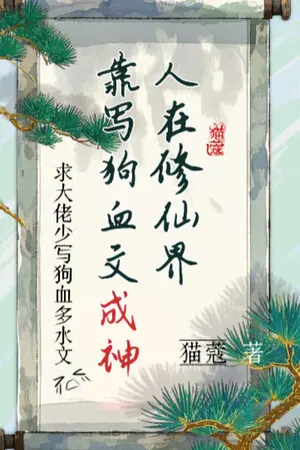 人在修仙界
猫蔻
靠写狗血文成神
求大佬少写狗血多水文
猫蔻 著